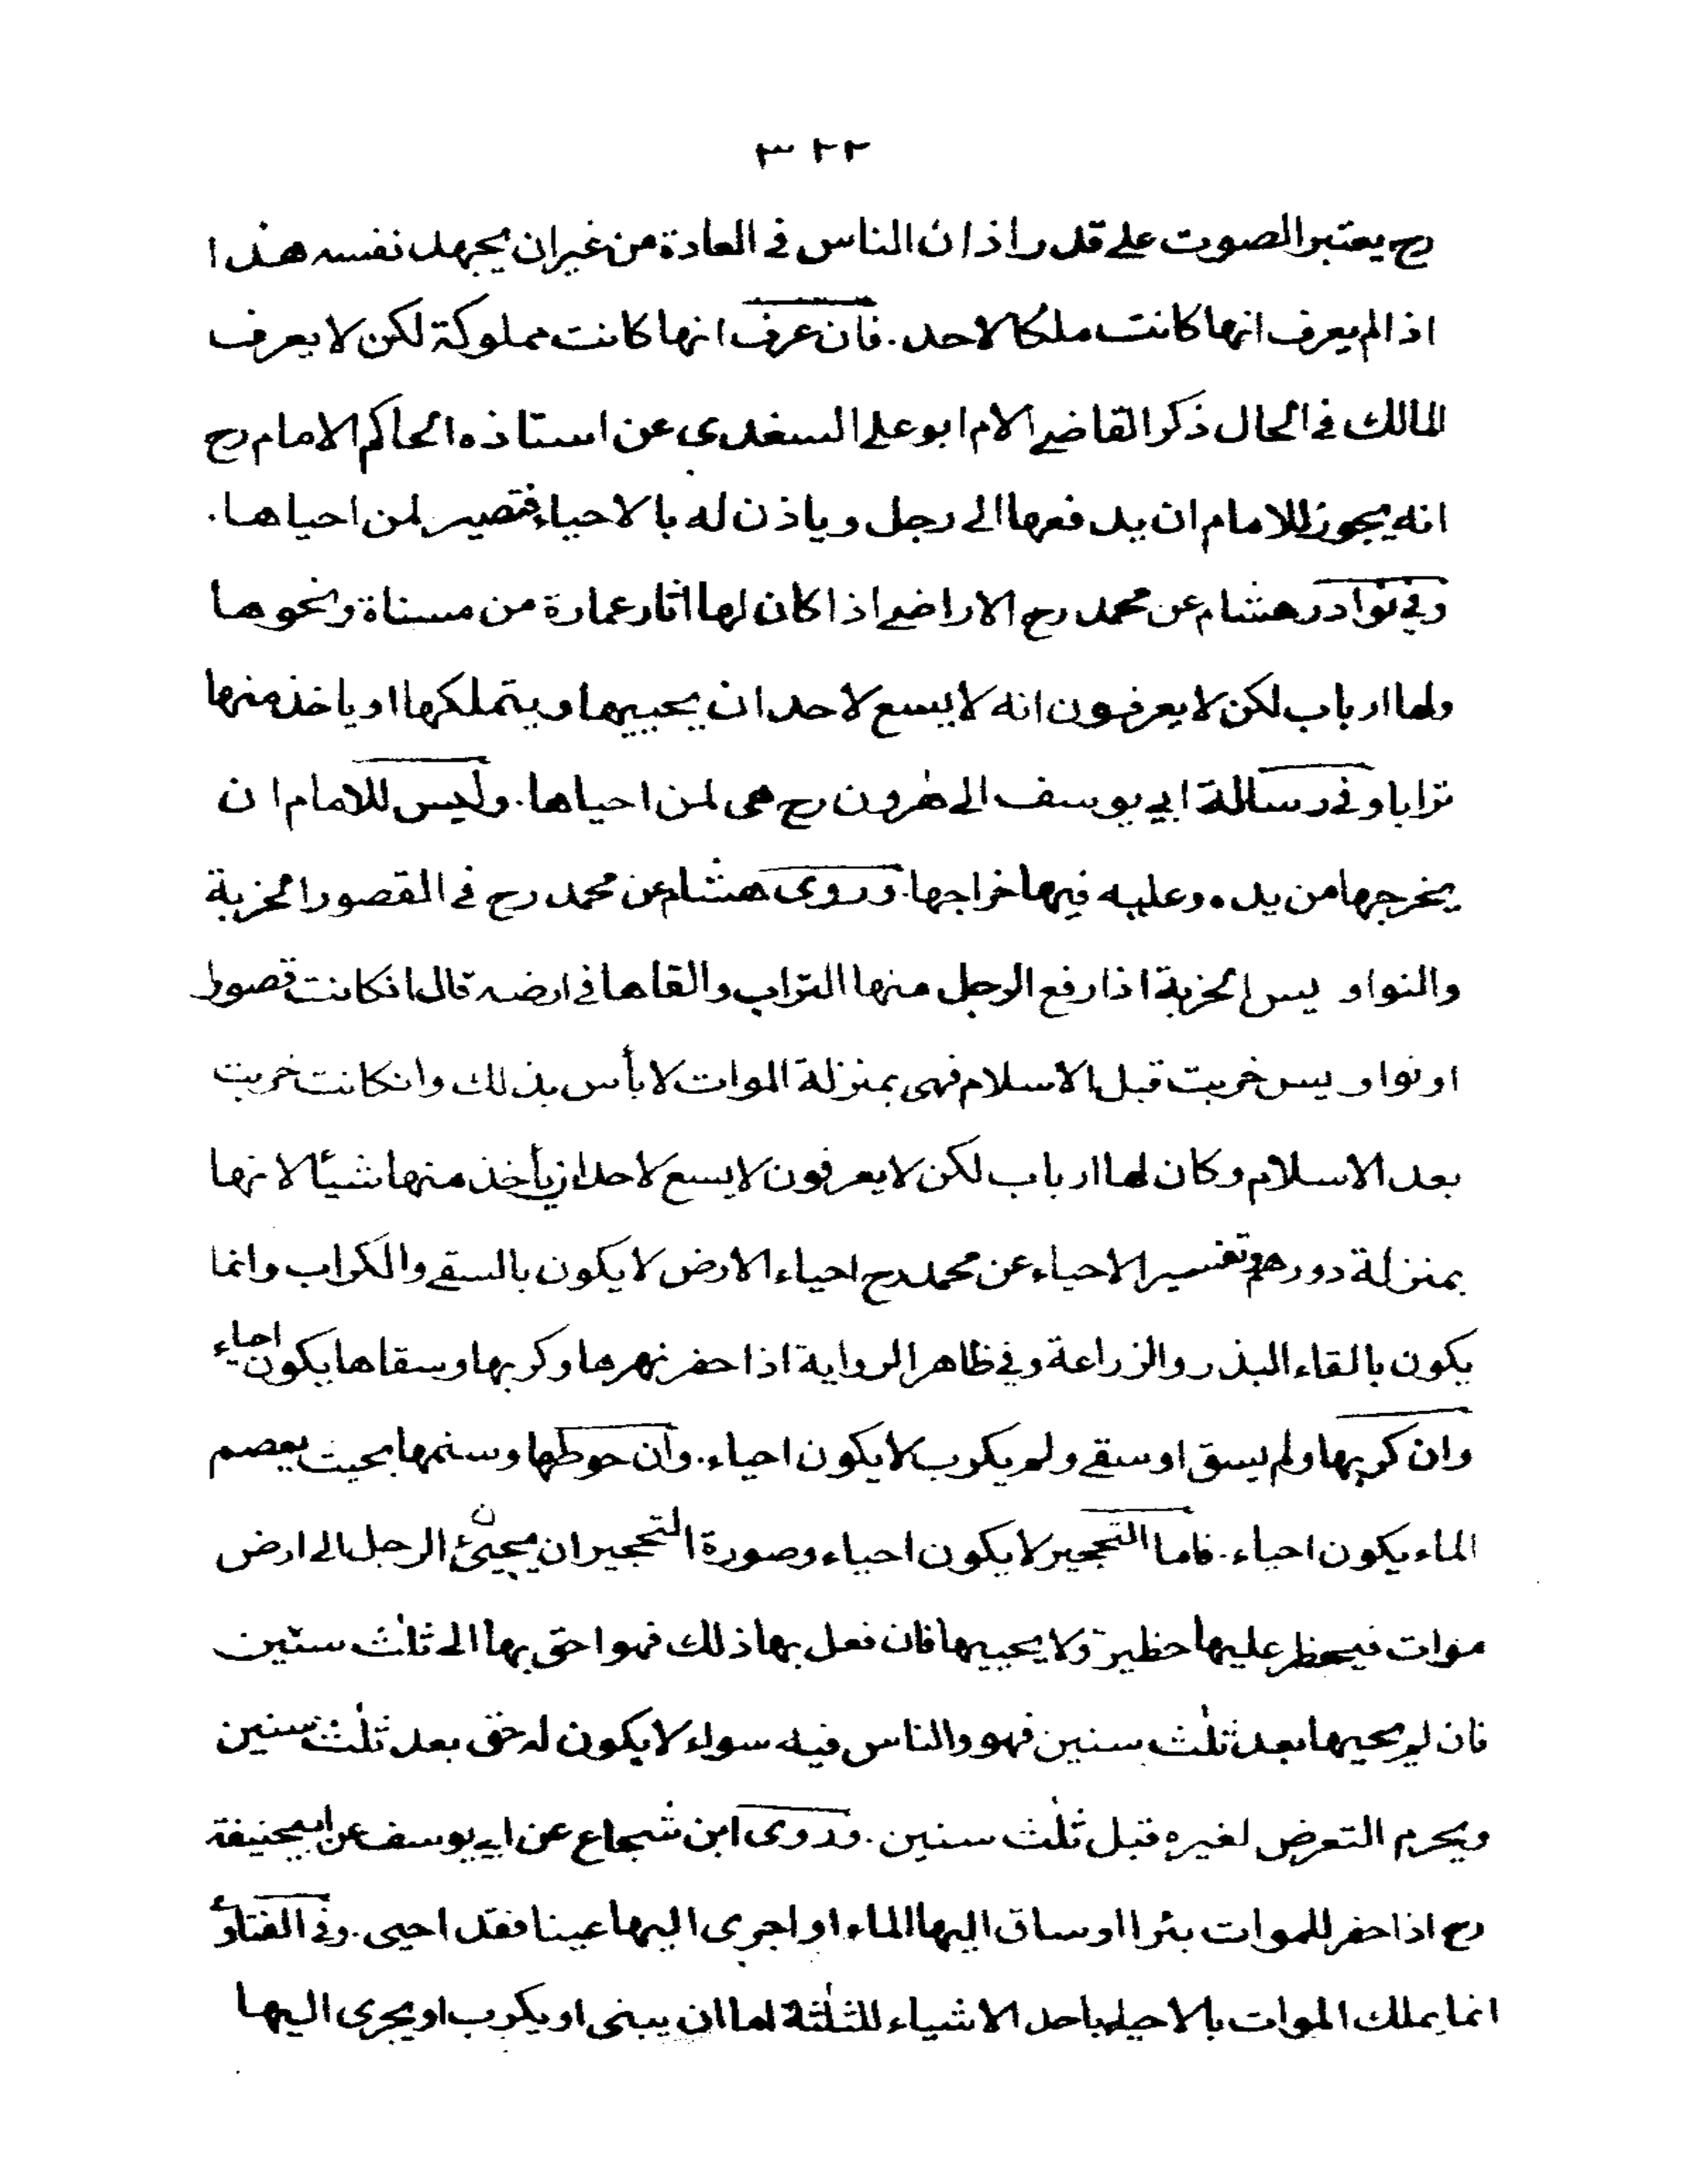 ٣٢٢
رح يعتبر الصوت على قدر اذان الناس فى العادة من غير ان يجهد نفسه هذا
اذا لم يعرف انها كانت ملكا لاحد. فان عرف انها كانت مملوكة لكن لا يعرف
المالك فى الحال ذكر القاضى الام ابو على السغدى عن استاذه الحاكم الامام رح
انه يجوز للامام ان يدفعها الى رجل وياذن له بالاحياء فتصير لمن احياها.
وفى نوادر هشام عن محمد رح الاراضى اذا كان لها اثار عمارة من مسناة ونحوها
ولها ارباب لكن لا يعرفون انه لا يسع لاحد ان يحييها ويتملكها او ياخذ منها
ترابا وفى رسالة ابى يوسف الى هٰرون رح هى لمن احياها. وليس للامام ان
يخرجها من يده وعليه فيها خراجها. وروى هشام عن محمد رح فى القصور الخربة
والنواويس الخربة اذا رفع الرجل منها التراب والقاها فى ارضه قال انكانت قصور
او نواويس خربت قبل الاسلام فهى بمنزلة الموات لا بأس بذلك وانكانت خربت
بعد الاسلام وكان لها ارباب لكن لا يعرفون لا يسع لاحد ان يأخذ منها شيئا لانها
بمنزلة دورهم وتفسير الاحياء عن محمد رح احياء الارض لا يكون بالسقى والكراب وانما
يكون بالقاء البذر والزراعة وفى ظاهر الرواية اذا حفر نهرها وكربها وسقاها يكون احياء
وان كربها ولم يسق او سقى ولم يكرب لا يكون احياء. وان حوطها وسنمها بحيث يعصم
الماء يكون احياء. فاما التحجير لا يكون احياء وصورة التحجير ان يجئ الرجل الى ارض
موات فيحظر عليها حظيرة ولا يحييها فان فعل بها ذلك فهو احق بها الى ثلٰث سنين
فان لم يحيها بعد ثلٰث سنين فهو والناس فيه سواء لا يكون له حق بعد ثلٰث سنين
ويحرم التعرض لغيره قبل ثلٰث سنين. وروى ابن شجاع عن ابى يوسف عن ابيحنيفة
رح اذا حفر للموات بئرا او ساق اليها الماء او اجرى اليها عينا فقد احيى. وفى الفتاوى
انما يملك الموات بالاحياء باحد الاشياء الثلٰثة اما ان يبنى او يكرب او يجرى اليها